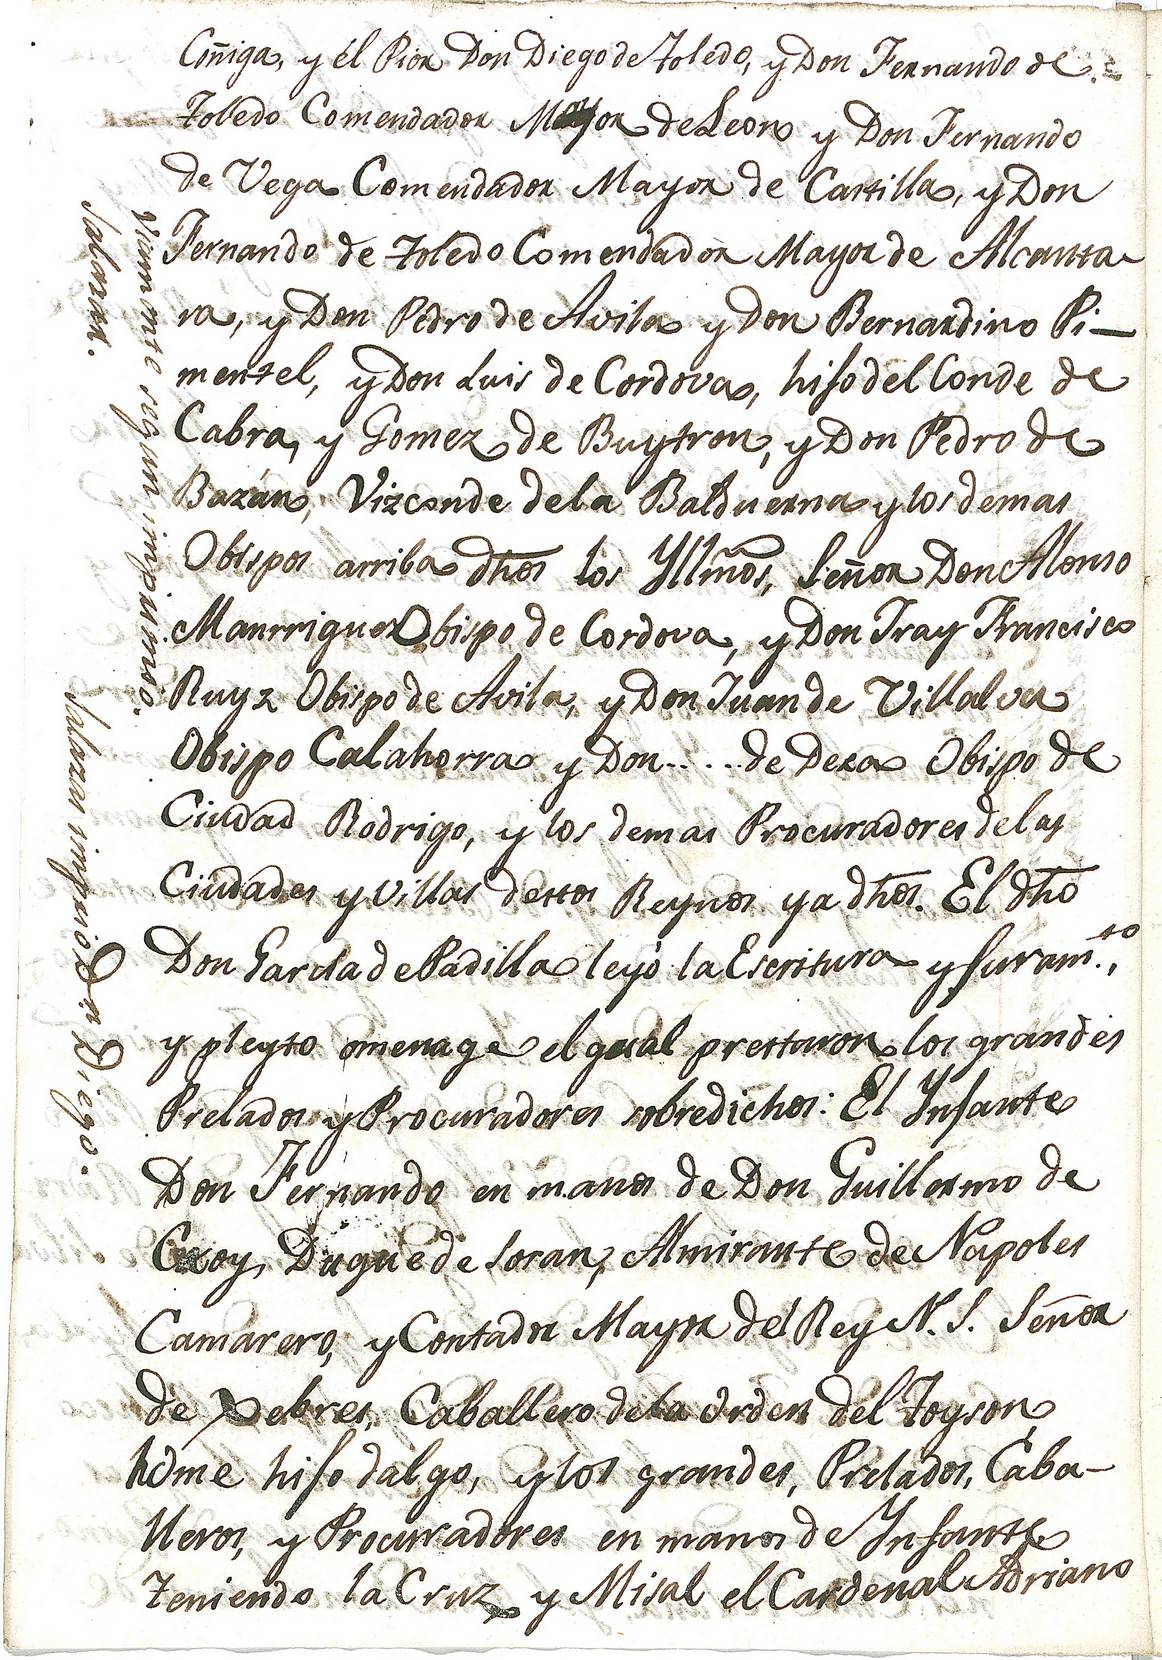 Cúñiga, y él Prior Don Diego de Toledo, y Don Fernando de
Toledo Comendador Mayor de Leon y Don Fernando
de Vega Comendador Mayor de Castilla, y Don
Fernando de Toledo Comendador Mayor de Alcanta-
ra, y Don Pedro de Avila y Don Bernardino Pi-
mentel, y Don Luis de Cordova, hijo del Conde de
Cabra, y Gomez de Buytron, y Don Pedro de
Bazán, Vizconde dela Balduerna y los demas
Obispos arriba dhos los Yllmõs, Señor Don Alonso
Manrriquez Obispo de Cordova, y Don Fray Francisco
Ruyz Obispo de Avila, y Don Juan de Villalva
Obispo Calahorra y Don..... de Deza Obispo de
Ciudad Rodrigo, y los demas Procuradores delas
Ciudades y Villas destos Reynos ya dhos. El dho
Don Garcia de Padilla leyó la Escritura y juram.to,
y pleyto omenage el qual prestaron los grandes
Prelados y Procuradores sobredichos: El Infante
Don Fernando en manos de Don Guillermo de
Croy, Duque de Soran, Almirante de Napoles
Camarero, y Contador Mayor del Rey N. S. Señor
de Xebres, Caballero dela orden del Toyson
home hijo dalgo, y los grandes, Prelados, Caba-
lleros, y Procuradores en manos de Infante
teniendo la Cruz y Misal el Cardenal Adriano
Viamonte segun impurno.
Salazar.
Salazar imprió Don Diego.